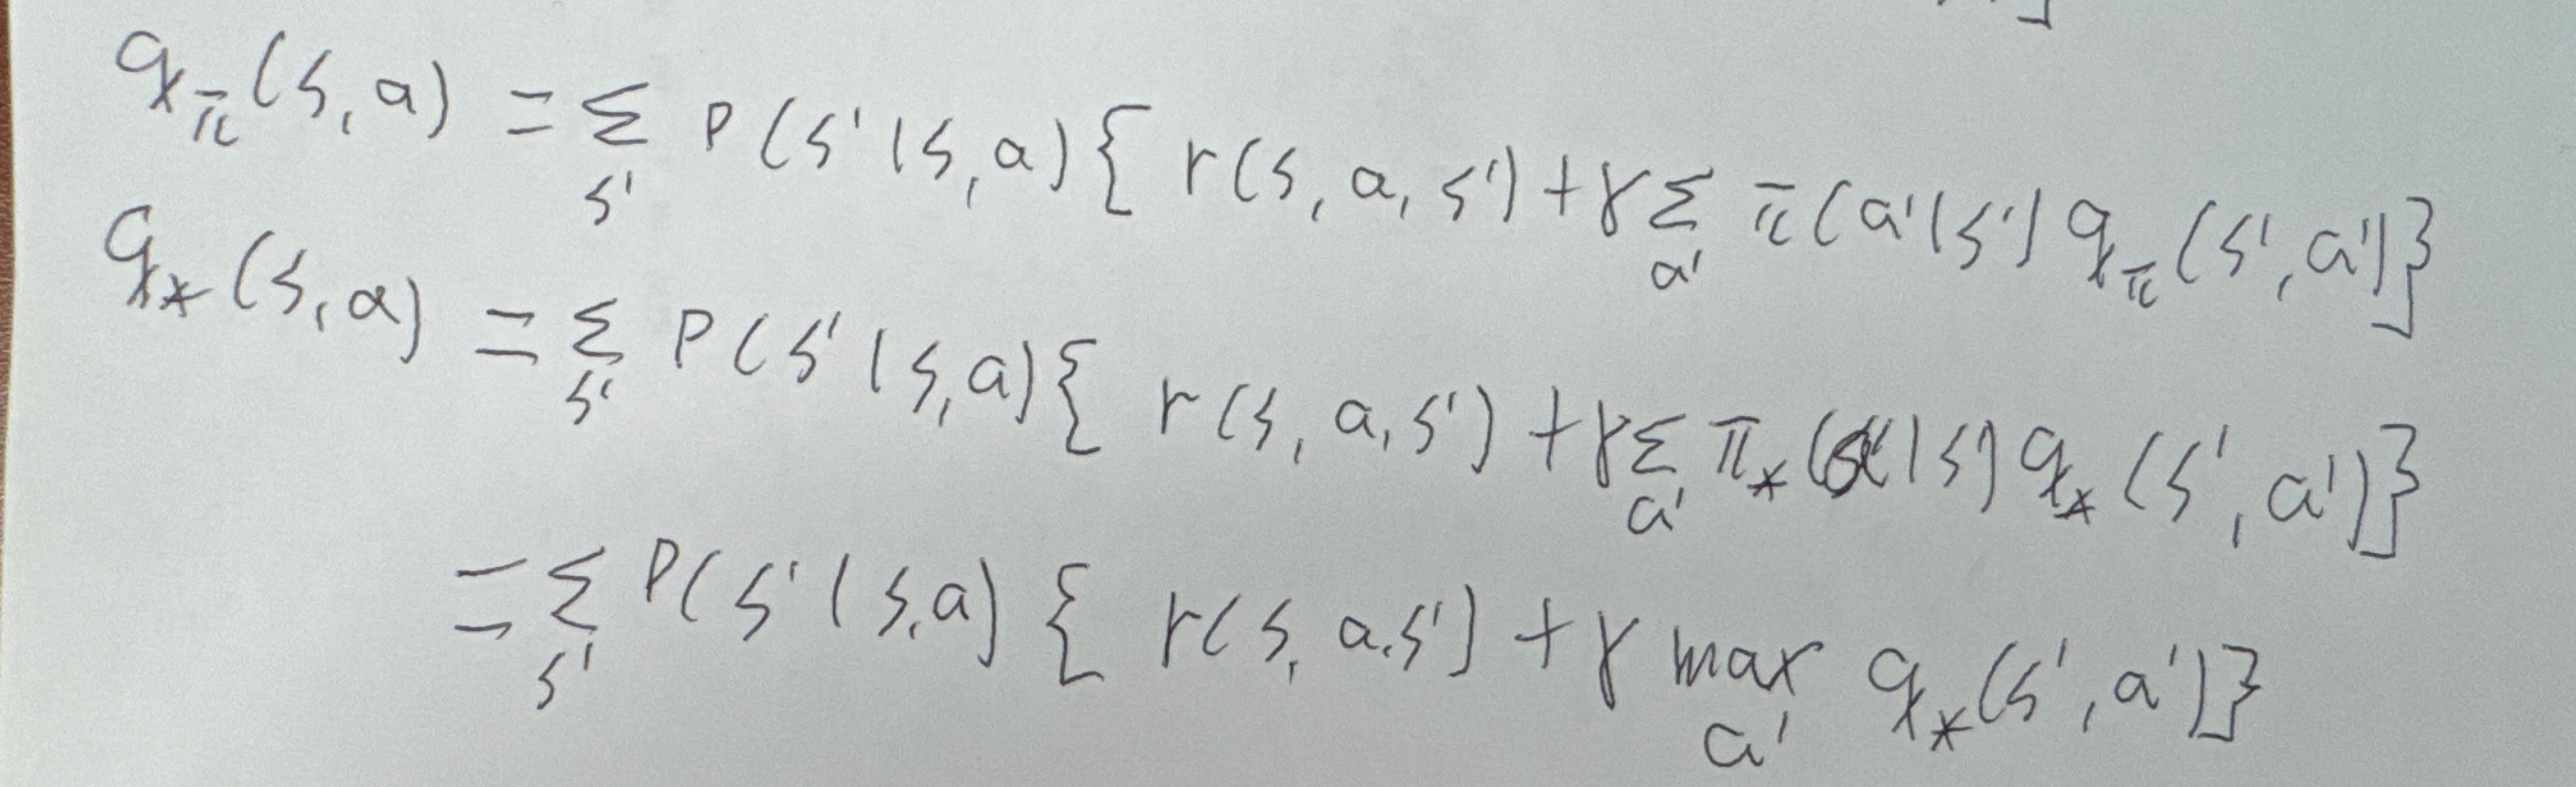 q_π(s,a) = Σ_{s'} P(s'|s,a){ r(s,a,s') + γ Σ_{a'} π(a'|s') q_π(s',a')}
q_*(s,a) = Σ_{s'} P(s'|s,a){ r(s,a,s') + γ Σ_{a'} π_*(a'|s) q_*(s',a')}
= Σ_{s'} P(s'|s,a) { r(s,a,s') + γ max_{a'} q_*(s',a')}